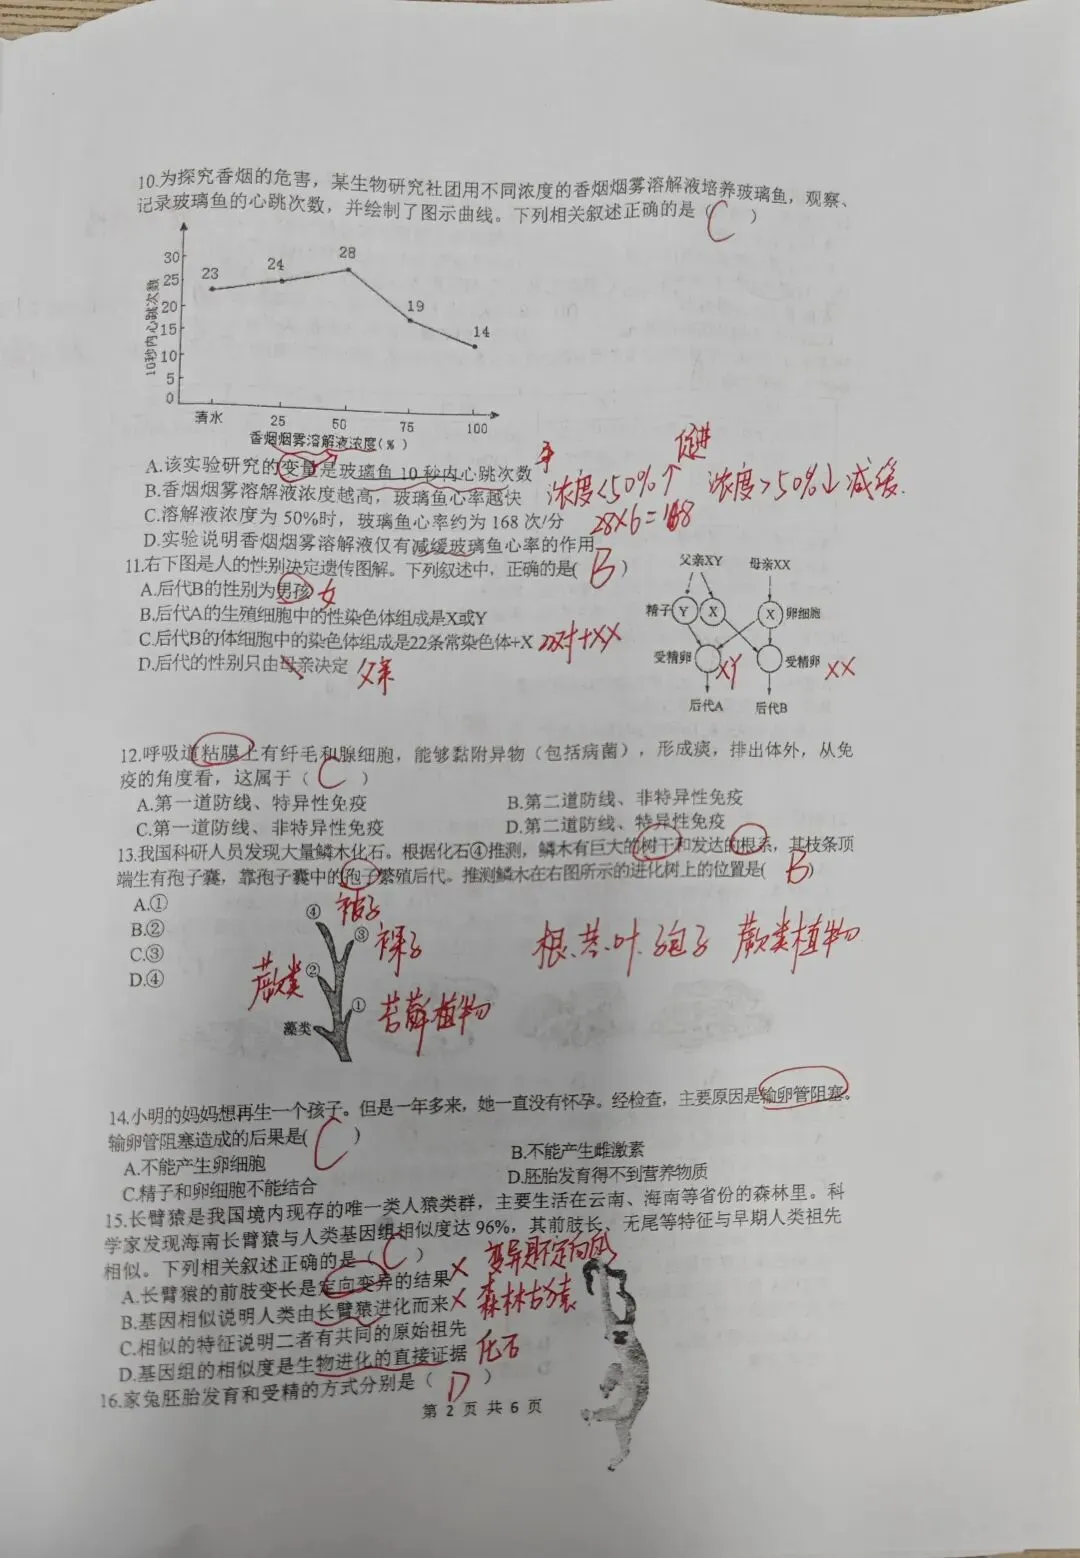 10.为探究香烟的危害，某生物研究社团用不同浓度的香烟烟雾溶解液培养玻璃鱼，观察、
记录玻璃鱼的心跳次数，并绘制了图示曲线。下列相关叙述正确的是（C）
10秒内心跳次数
30
25
20
15
10
5
0
23
24
28
19
14
清水 25 50 75 100
香烟烟雾溶解液浓度(%)
A.该实验研究的变量是玻璃鱼 10 秒内心跳次数
B.香烟烟雾溶解液浓度越高，玻璃鱼心率越快
浓度<50%↑ 促进 浓度>50%↓减缓.
C.溶解液浓度为 50%时，玻璃鱼心率约为 168 次/分
28×6=168
D.实验说明香烟烟雾溶解液仅有减缓玻璃鱼心率的作用
11.右下图是人的性别决定遗传图解。下列叙述中，正确的是(B)
A.后代B的性别为男孩 女
B.后代A的生殖细胞中的性染色体组成是X或Y
C.后代B的体细胞中的染色体组成是22条常染色体+X 22对+XX
D.后代的性别只由母亲决定 父亲
父亲XY 母亲XX
精子 Y X X 卵细胞
受精卵 XY 受精卵 XX
后代A 后代B
12.呼吸道粘膜上有纤毛和腺细胞，能够黏附异物（包括病菌），形成痰，排出体外，从免
疫的角度看，这属于（C）
A.第一道防线、特异性免疫 B.第二道防线、非特异性免疫
C.第一道防线、非特异性免疫 D.第二道防线、特异性免疫
13.我国科研人员发现大量鳞木化石。根据化石④推测，鳞木有巨大的树干和发达的根系，其枝条顶
端生有孢子囊，靠孢子囊中的孢子繁殖后代。推测鳞木在右图所示的进化树上的位置是(B)
A.①
B.②
C.③
D.④
④ 被子
③ 裸子
蕨类 ②
① 苔藓植物
藻类
根.茎.叶. 孢子 蕨类植物
14.小明的妈妈想再生一个孩子。但是一年多来，她一直没有怀孕。经检查，主要原因是输卵管阻塞。
输卵管阻塞造成的后果是(C)
A.不能产生卵细胞 B.不能产生雌激素
C.精子和卵细胞不能结合 D.胚胎发育得不到营养物质
15.长臂猿是我国境内现存的唯一类人猿类群，主要生活在云南、海南等省份的森林里。科
学家发现海南长臂猿与人类基因组相似度达 96%，其前肢长、无尾等特征与早期人类祖先
相似。下列相关叙述正确的是（C）
A.长臂猿的前肢变长是定向变异的结果 × 变异是不定向的
B.基因相似说明人类由长臂猿进化而来 × 森林古猿
C.相似的特征说明二者有共同的原始祖先
D.基因组的相似度是生物进化的直接证据 化石
16.家兔胚胎发育和受精的方式分别是（D）
第 2 页 共 6 页